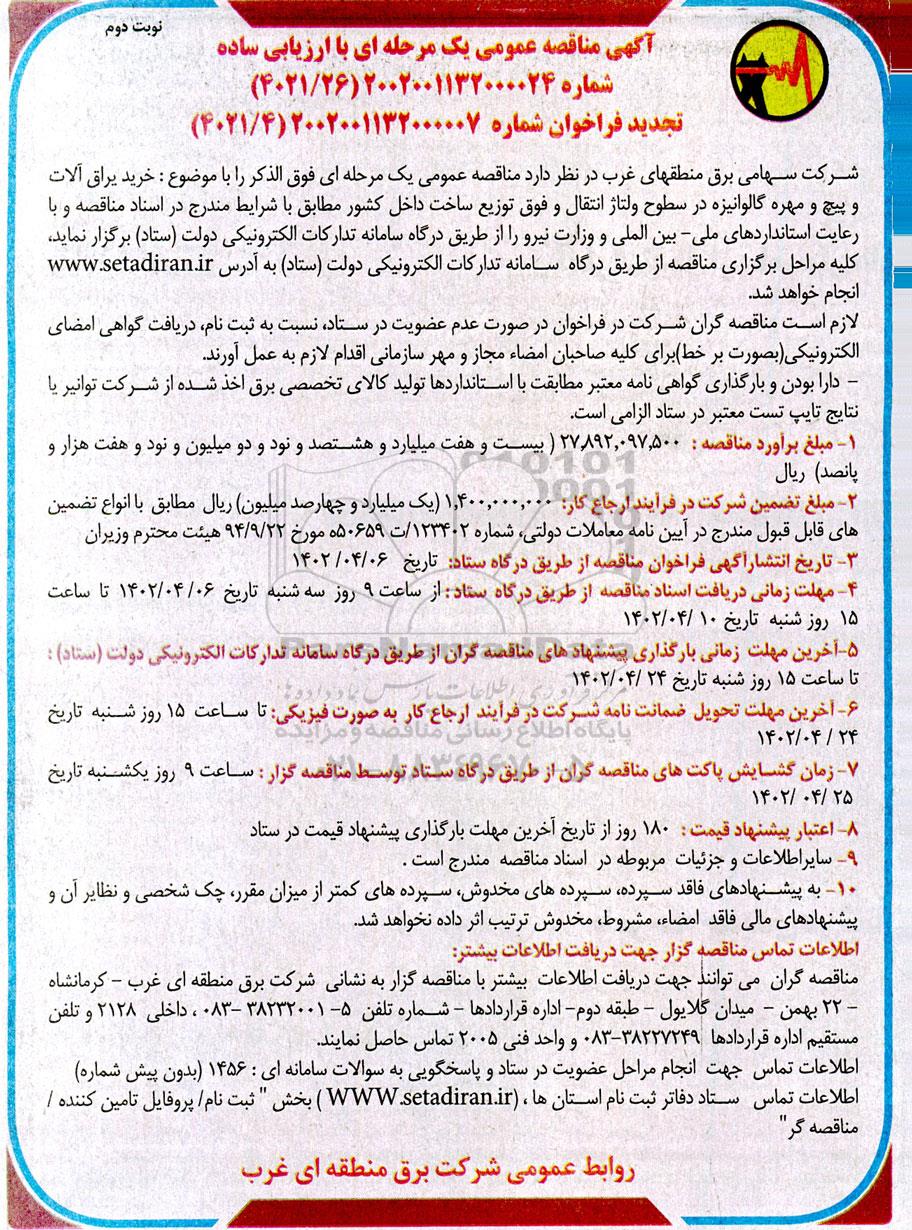 نوبت دوم
آگهی مناقصه عمومی یک مرحله ای با ارزیابی ساده
شماره ۲۰۰۲۰۰۱۱۳۲۰۰۰۰۲۴ (۴۰۲۱/۲۶)
تجدید فراخوان شماره ۲۰۰۲۰۰۱۱۳۲۰۰۰۰۰۷ (۴۰۲۱/۴)
شرکت سهامی برق منطقهای غرب در نظر دارد مناقصه عمومی یک مرحله ای فوق الذکر را با موضوع : خرید یراق آلات
و پیچ و مهره گالوانیزه در سطوح ولتاژ انتقال و فوق توزیع ساخت داخل کشور مطابق با شرایط مندرج در اسناد مناقصه و با
رعایت استانداردهای ملی- بین المللی و وزارت نیرو را از طریق درگاه سامانه تدارکات الکترونیکی دولت (ستاد) برگزار نماید،
کلیه مراحل برگزاری مناقصه از طریق درگاه سامانه تدارکات الکترونیکی دولت (ستاد) به آدرس www.setadiran.ir
انجام خواهد شد.
لازم است مناقصه گران شرکت در فراخوان در صورت عدم عضویت در ستاد، نسبت به ثبت نام، دریافت گواهی امضای
الکترونیکی(بصورت بر خط)برای کلیه صاحبان امضاء مجاز و مهر سازمانی اقدام لازم به عمل آورند.
- دارا بودن و بارگذاری گواهی نامه معتبر مطابقت با استانداردها تولید کالای تخصصی برق اخذ شده از شرکت توانیر یا
نتایج تایپ تست معتبر در ستاد الزامی است.
۱- مبلغ برآورد مناقصه : ۲۷,۸۹۲,۰۹۷,۵۰۰ ( بیست و هفت میلیارد و هشتصد و نود و دو میلیون و نود و هفت هزار و
پانصد) ریال
۲- مبلغ تضمین شرکت در فرآیند ارجاع کار: ۱,۴۰۰,۰۰۰,۰۰۰ (یک میلیارد و چهارصد میلیون) ریال مطابق با انواع تضمین
های قابل قبول مندرج در آیین نامه معاملات دولتی، شماره ۱۲۳۴۰۲/ت ۵۰۶۵۹ه مورخ ۹۴/۹/۲۲ هیئت محترم وزیران
۳- تاریخ انتشارآگهی فراخوان مناقصه از طریق درگاه ستاد: تاریخ ۰۶/۰۴/ ۱۴۰۲
۴- مهلت زمانی دریافت اسناد مناقصه از طریق درگاه ستاد : از ساعت ۹ روز سه شنبه تاریخ ۰۶/ ۱۴۰۲/۰۴ تا ساعت
۱۵ روز شنبه تاریخ ۱۰ /۱۴۰۲/۰۴
۵-آخرین مهلت زمانی بارگذاری پیشنهاد های مناقصه گران از طریق درگاه سامانه تدارکات الکترونیکی دولت (ستاد) :
تا ساعت ۱۵ روز شنبه تاریخ ۲۴ /۱۴۰۲/۰۴
۶- آخرین مهلت تحویل ضمانت نامه شرکت در فرآیند ارجاع کار به صورت فیزیکی: تا ساعت ۱۵ روز شنبه تاریخ
۲۴ / ۱۴۰۲/۰۴
۷- زمان گشایش پاکت های مناقصه گران از طریق درگاه ستاد توسط مناقصه گزار : ساعت ۹ روز یکشنبه تاریخ
۲۵ /۰۴ /۱۴۰۲
۸- اعتبار پیشنهاد قیمت : ۱۸۰ روز از تاریخ آخرین مهلت بارگذاری پیشنهاد قیمت در ستاد
۹- سایراطلاعات و جزئیات مربوطه در اسناد مناقصه مندرج است .
۱۰- به پیشنهادهای فاقد سپرده، سپرده های مخدوش، سپرده های کمتر از میزان مقرر، چک شخصی و نظایر آن و
پیشنهادهای مالی فاقد امضاء، مشروط، مخدوش ترتیب اثر داده نخواهد شد.
اطلاعات تماس مناقصه گزار جهت دریافت اطلاعات بیشتر:
مناقصه گران می توانند جهت دریافت اطلاعات بیشتر با مناقصه گزار به نشانی شرکت برق منطقه ای غرب - کرمانشاه
- ۲۲ بهمن - میدان گلایول - طبقه دوم- اداره قراردادها - شماره تلفن ۵- ۳۸۲۳۲۰۰۱ -۰۸۳ ، داخلی ۲۱۲۸ و تلفن
مستقیم اداره قراردادها ۳۸۲۲۷۲۴۹-۰۸۳ و واحد فنی ۲۰۰۵ تماس حاصل نمایند.
اطلاعات تماس جهت انجام مراحل عضویت در ستاد و پاسخگویی به سوالات سامانه ای : ۱۴۵۶ (بدون پیش شماره)
اطلاعات تماس ستاد دفاتر ثبت نام استان ها ، (WWW.setadiran.ir ) بخش " ثبت نام/ پروفایل تامین کننده /
مناقصه گر"
روابط عمومی شرکت برق منطقه ای غرب